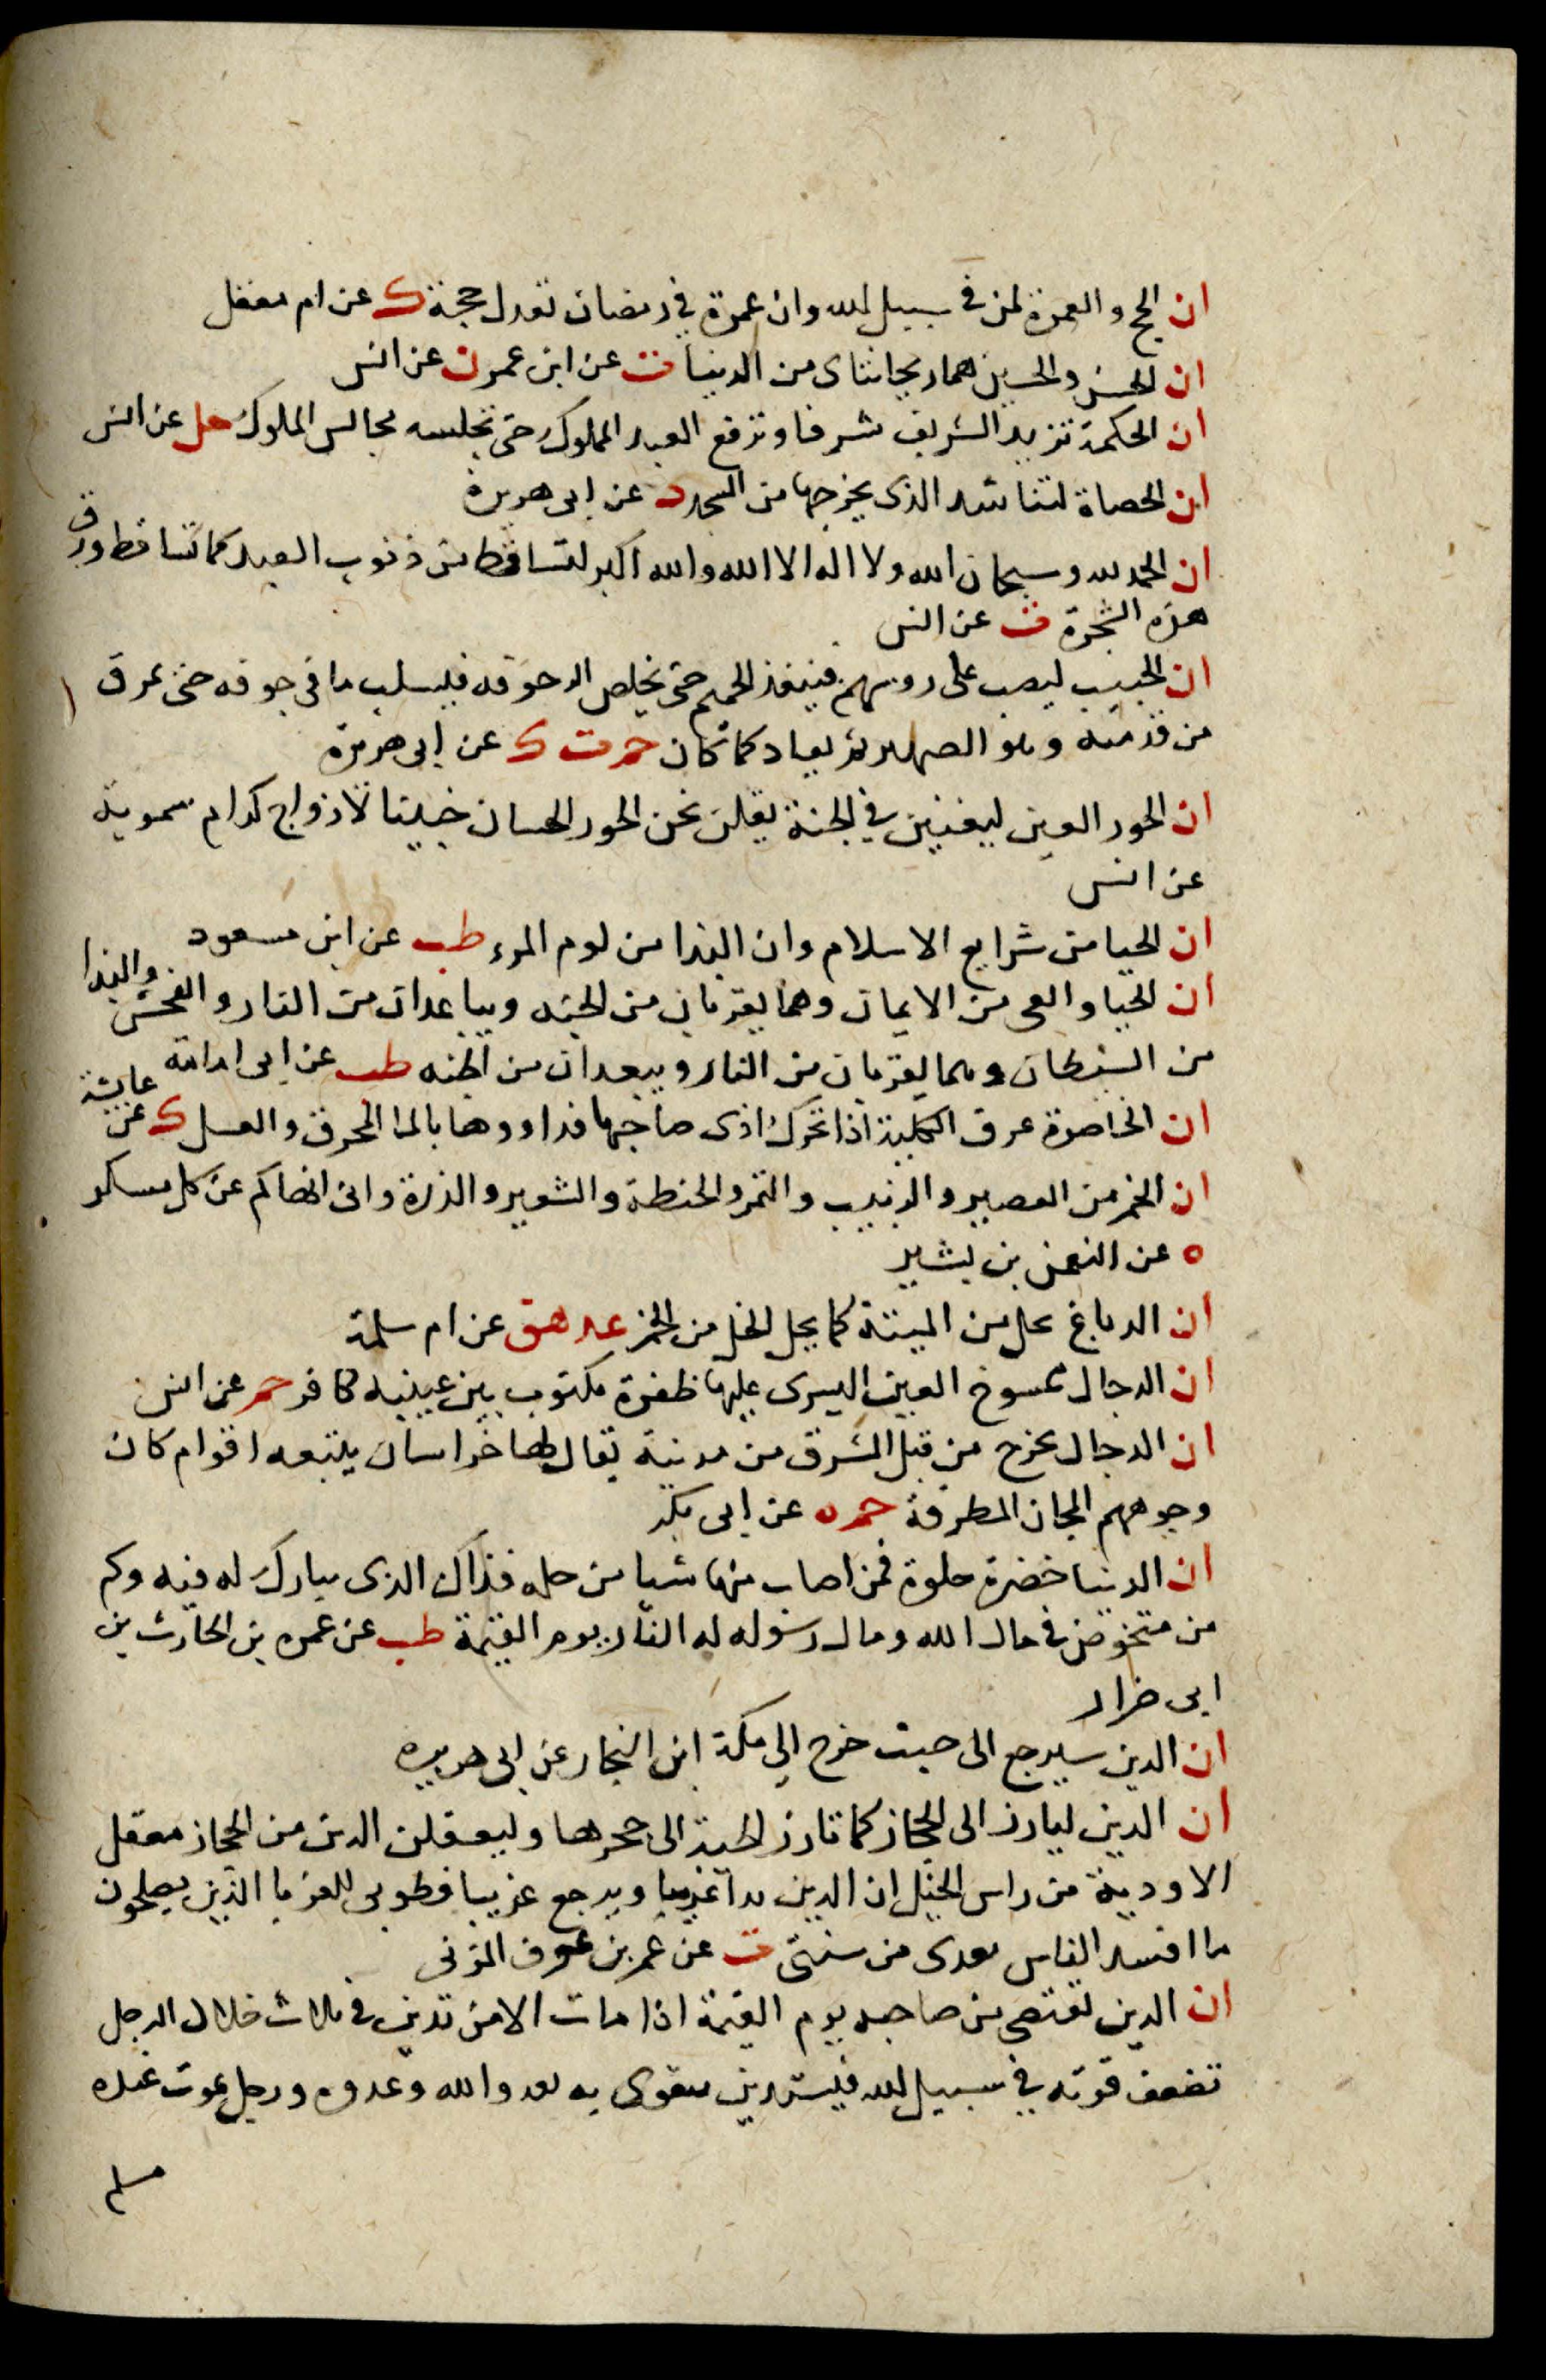 ان الحج والعمرة لمن في سبيل الله وان عمرة في رمضان تعدل حجة ك عن ام معقل
ان الحسن والحسين هما ريحانتاى من الدنيا ت عن ابن عمر ن عن انس
ان الحكمة تزيد الشريف شرفا وترفع العبد المملوك حتى تجلسه مجالس الملوك حل عن انس
ان الحصاة لتناشد الذى يخرجها من المسجد د عن ابى هريرة
ان الحمد لله وسبحان الله ولا اله الا الله والله اكبر لتساقط من ذنوب العبد كما تساقط ورق
هذه الشجرة ت عن انس
ان الحميم ليصب على روسهم فينفذ الحميم حتى يخلص الى جوفه فيسلب ما في جوفه حتى يمرق
من قدميه وهو الصهر ثم يعاد كما كان حم ت ك عن ابى هريرة
ان الحور العين ليغنين في الجنة يقلن نحن الحور الحسان خبينا لازواج كرام سموية
عن انس
ان الحيا من شرايع الاسلام وان البذا من لوم المرء طب عن ابن مسعود
ان الحيا والعى من الايمان وهما يقربان من الجنه ويباعدان من النار والفحش والبذا
من الشيطان وهما يقربان من النار ويبعدان من الجنه طب عن ابى امامة
ان الخاصرة عرق الكلية اذا تحرك اذى صاحبها فداووها بالما المحرق والعسل ك عن عايشة
ان الخمر من العصير والزبيب والتمر والحنطة والشعير والذرة وانى انهاكم عن كل مسكر
ه عن النعمن بن بشير
ان الدباغ يحل من الميتة كما يحل الخل من الخمر عد هق عن ام سلمة
ان الدجال ممسوح العين اليسرى عليها ظفرة مكتوب بين عينيه كافر حم عن انس
ان الدجال يخرج من قبل المشرق من مدينة يقال لها خراسان يتبعه اقوام كان
وجوههم المجان المطرقة حم ه عن ابى بكر
ان الدنيا خضرة حلوة فمن اصاب منها شيا من حله فذاك الذى يبارك له فيه وكم
من متخوض في مال الله ومال رسوله له النار يوم القيمة طب عن عمره بن الحارث بن
ابى ضرار
ان الدين سيرجع الى حيث خرج الى مكة ابن النجار عن ابى هريره
ان الدين ليارز الى الحجاز كما تارز الحية الى جحرها وليعقلن الدين من الحجاز معقل
الاودية من راس الجبل ان الدين بدا غريبا ويرجع غريبا فطوبى للغربا الذين يصلحون
ما افسد الناس بعدى من سنتى ت عن عمر بن عوف المزنى
ان الدين يقتص من صاحبه يوم القيمة اذا مات الا من تدين في ثلاث خلال الرجل
تضعف قوته في سبيل الله فيستدين يتقوى به لعدو الله وعدوه ورجل يموت عنده
مسلم